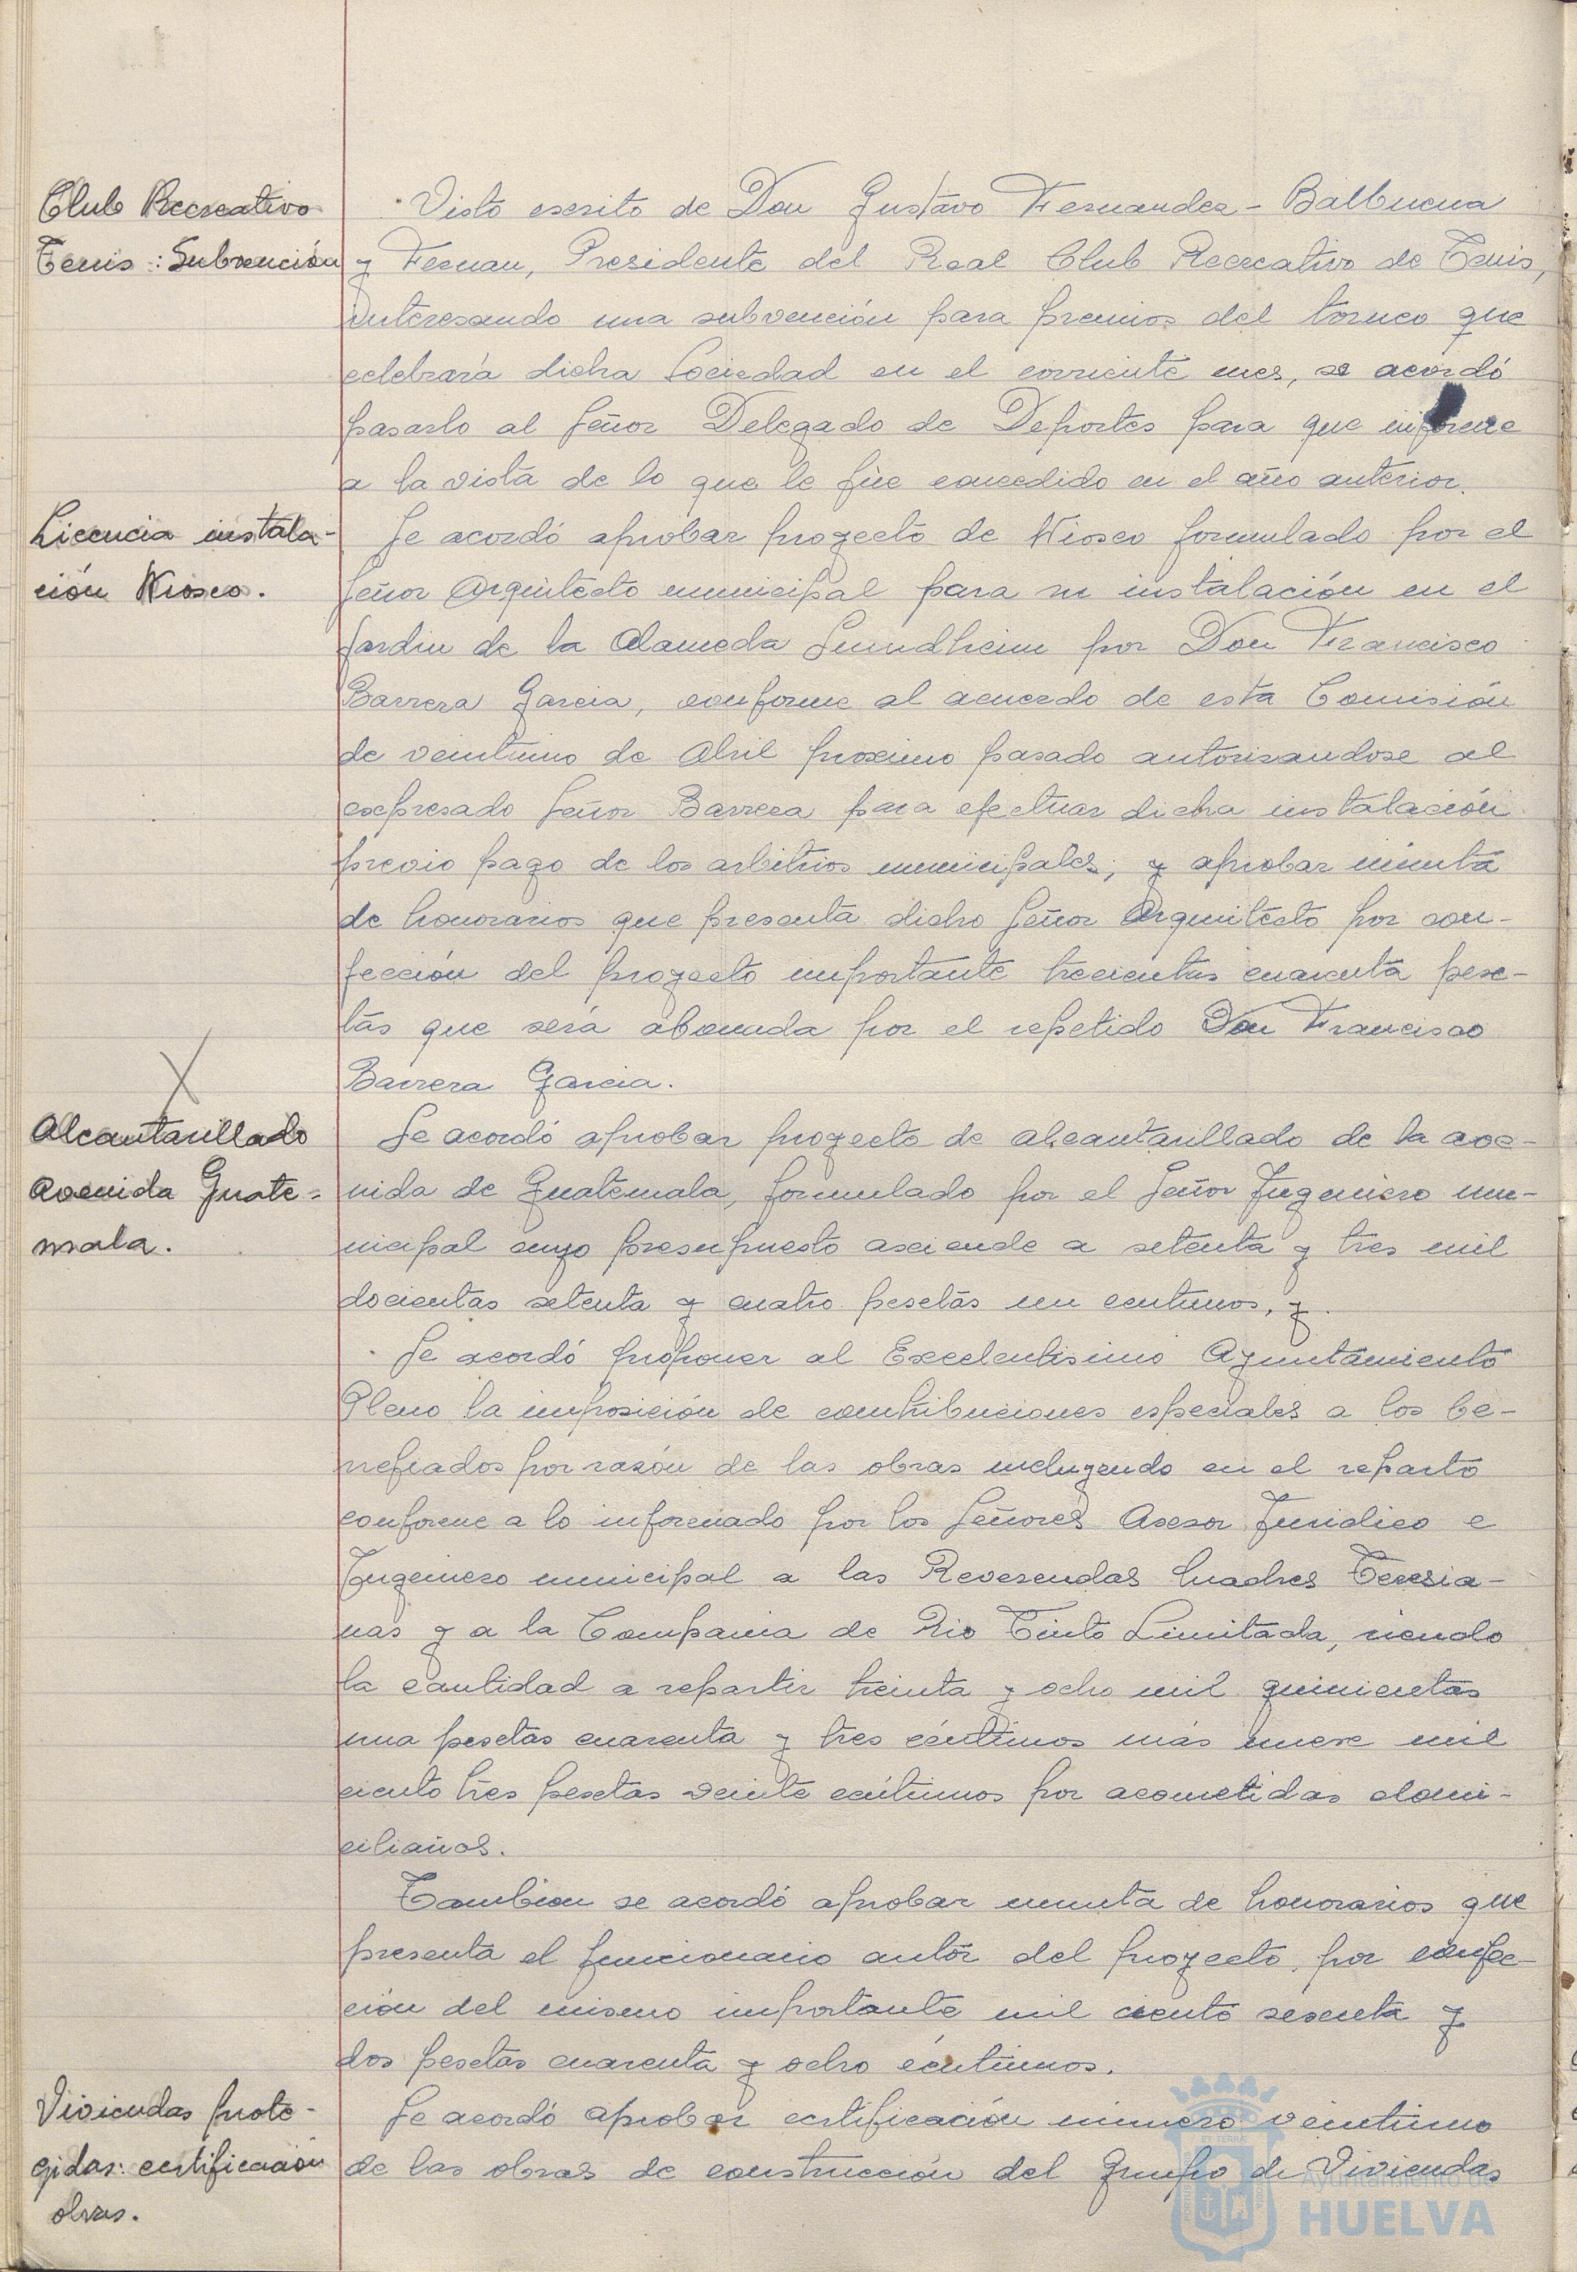 Club Recreativo
Tenis: Subvención
Visto escrito de Don Gustavo Fernandez-Balbuena
y Fernan, Presidente del Real Club Recreativo de Tenis,
interesando una subvención para premios del torneo que
celebrará dicha Sociedad en el corriente mes, se acordó
pasarlo al Señor Delegado de Deportes para que informe
a la vista de lo que le fúe concedido en el año anterior.
Licencia instala-
ción Kiosco.
Se acordó aprobar proyecto de Kiosco formulado por el
Señor Arquitecto municipal para su instalación en el
Jardin de la Alameda Sundheim por Don Francisco
Barrera Garcia, conforme al acuerdo de esta Comisión
de veintiuno de Abril proximo pasado autorizandose al
expresado Señor Barrera para efectuar dicha instalación
previo pago de los arbitrios municipales; y aprobar minuta
de honorarios que presenta dicho Señor Arquitecto por con-
fección del proyecto importante trecientas cuarenta pese-
tas que será abonada por el repetido Don Francisco
Barrera Garcia.
Alcantarillado
Avenida Guate-
mala.
Se acordó aprobar proyecto de alcantarillado de la ave-
nida de Guatemala, formulado por el Señor Ingeniero mu-
nicipal cuyo presupuesto asciende a setenta y tres mil
docientas setenta y cuatro pesetas un centimos, y
Se acordó proponer al Excelentisimo Ayuntamiento
Pleno la imposición de contribuciones especiales a los be-
nefiados por razón de las obras incluyendo en el reparto
conforme a lo informado por los Señores Asesor Juridico e
Ingeniero municipal a las Reverendas Madres Teresia-
nas y a la Compania de Rio Tinto Limitada, siendo
la cantidad a repartir treinta y ocho mil quinientas
una pesetas cuarenta y tres céntimos más nueve mil
ciento tres pesetas veinte céntimos por acometidas domi-
ciliarios.
Tambien se acordó aprobar minuta de honorarios que
presenta el funcionario autor del proyecto, por confec-
ción del mismo importante mil ciento sesenta y
dos pesetas cuarenta y ocho céntimos.
Viviendas prote-
gidas: certificación
obras.
Se acordó aprobar certificación número veintiuno
de las obras de construcción del Grupo de Viviendas
Ayuntamiento de
HUELVA